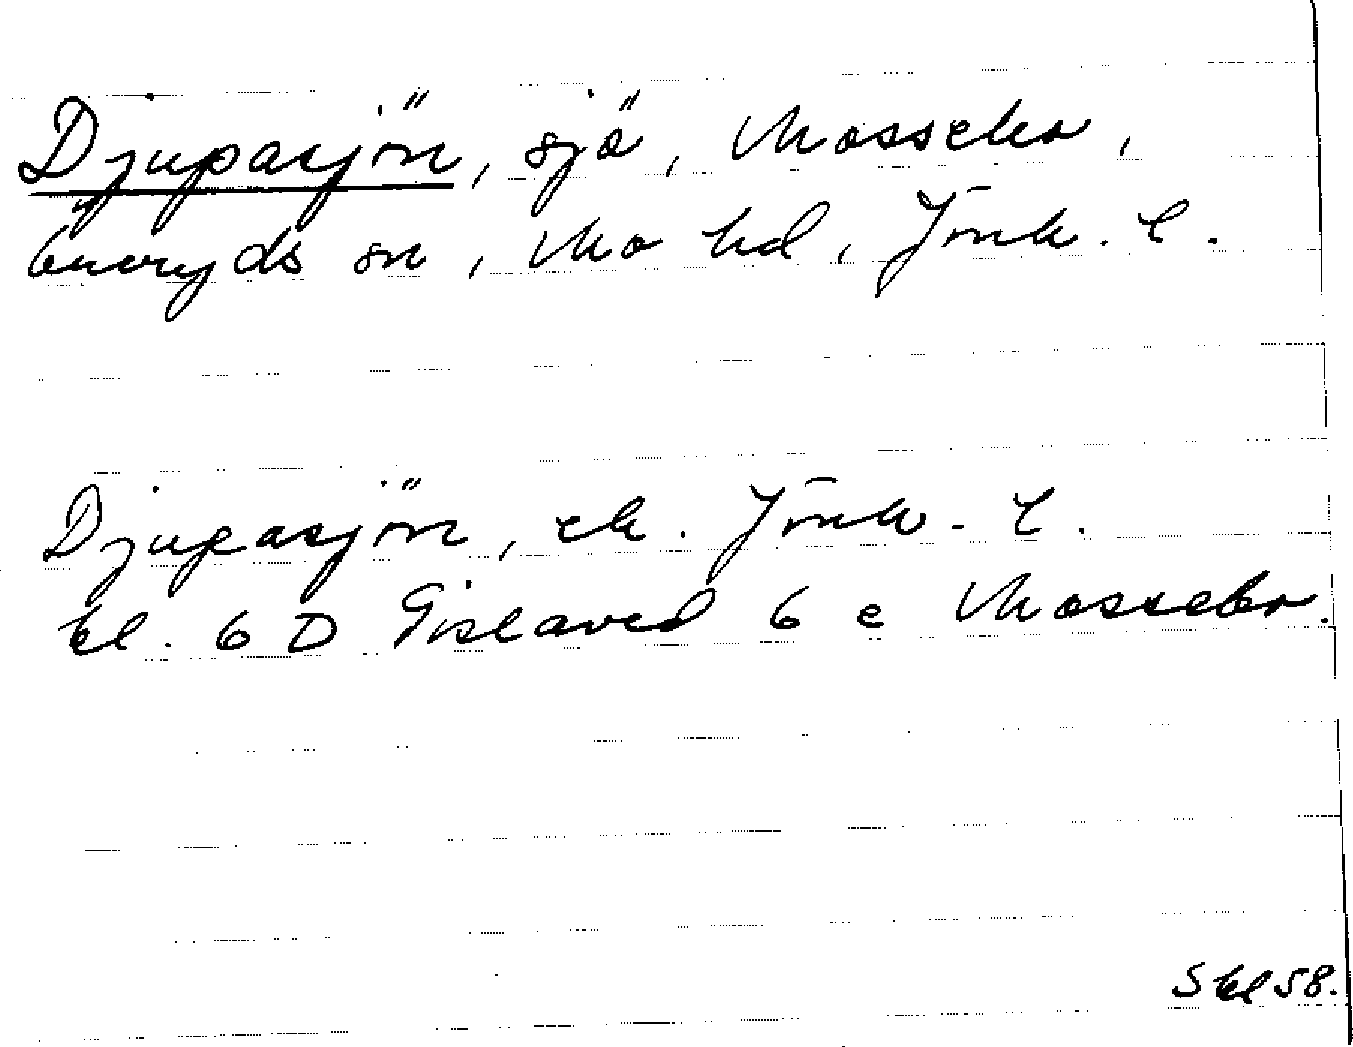 Djupasjön, sjö, Mossebo,
Öreryds sn, Mo hd, Jönk. l.
Djupasjön, ek. Jönk. l.
bl. 6 D Gislaved 6 e Mossebo.
Sbl 58.